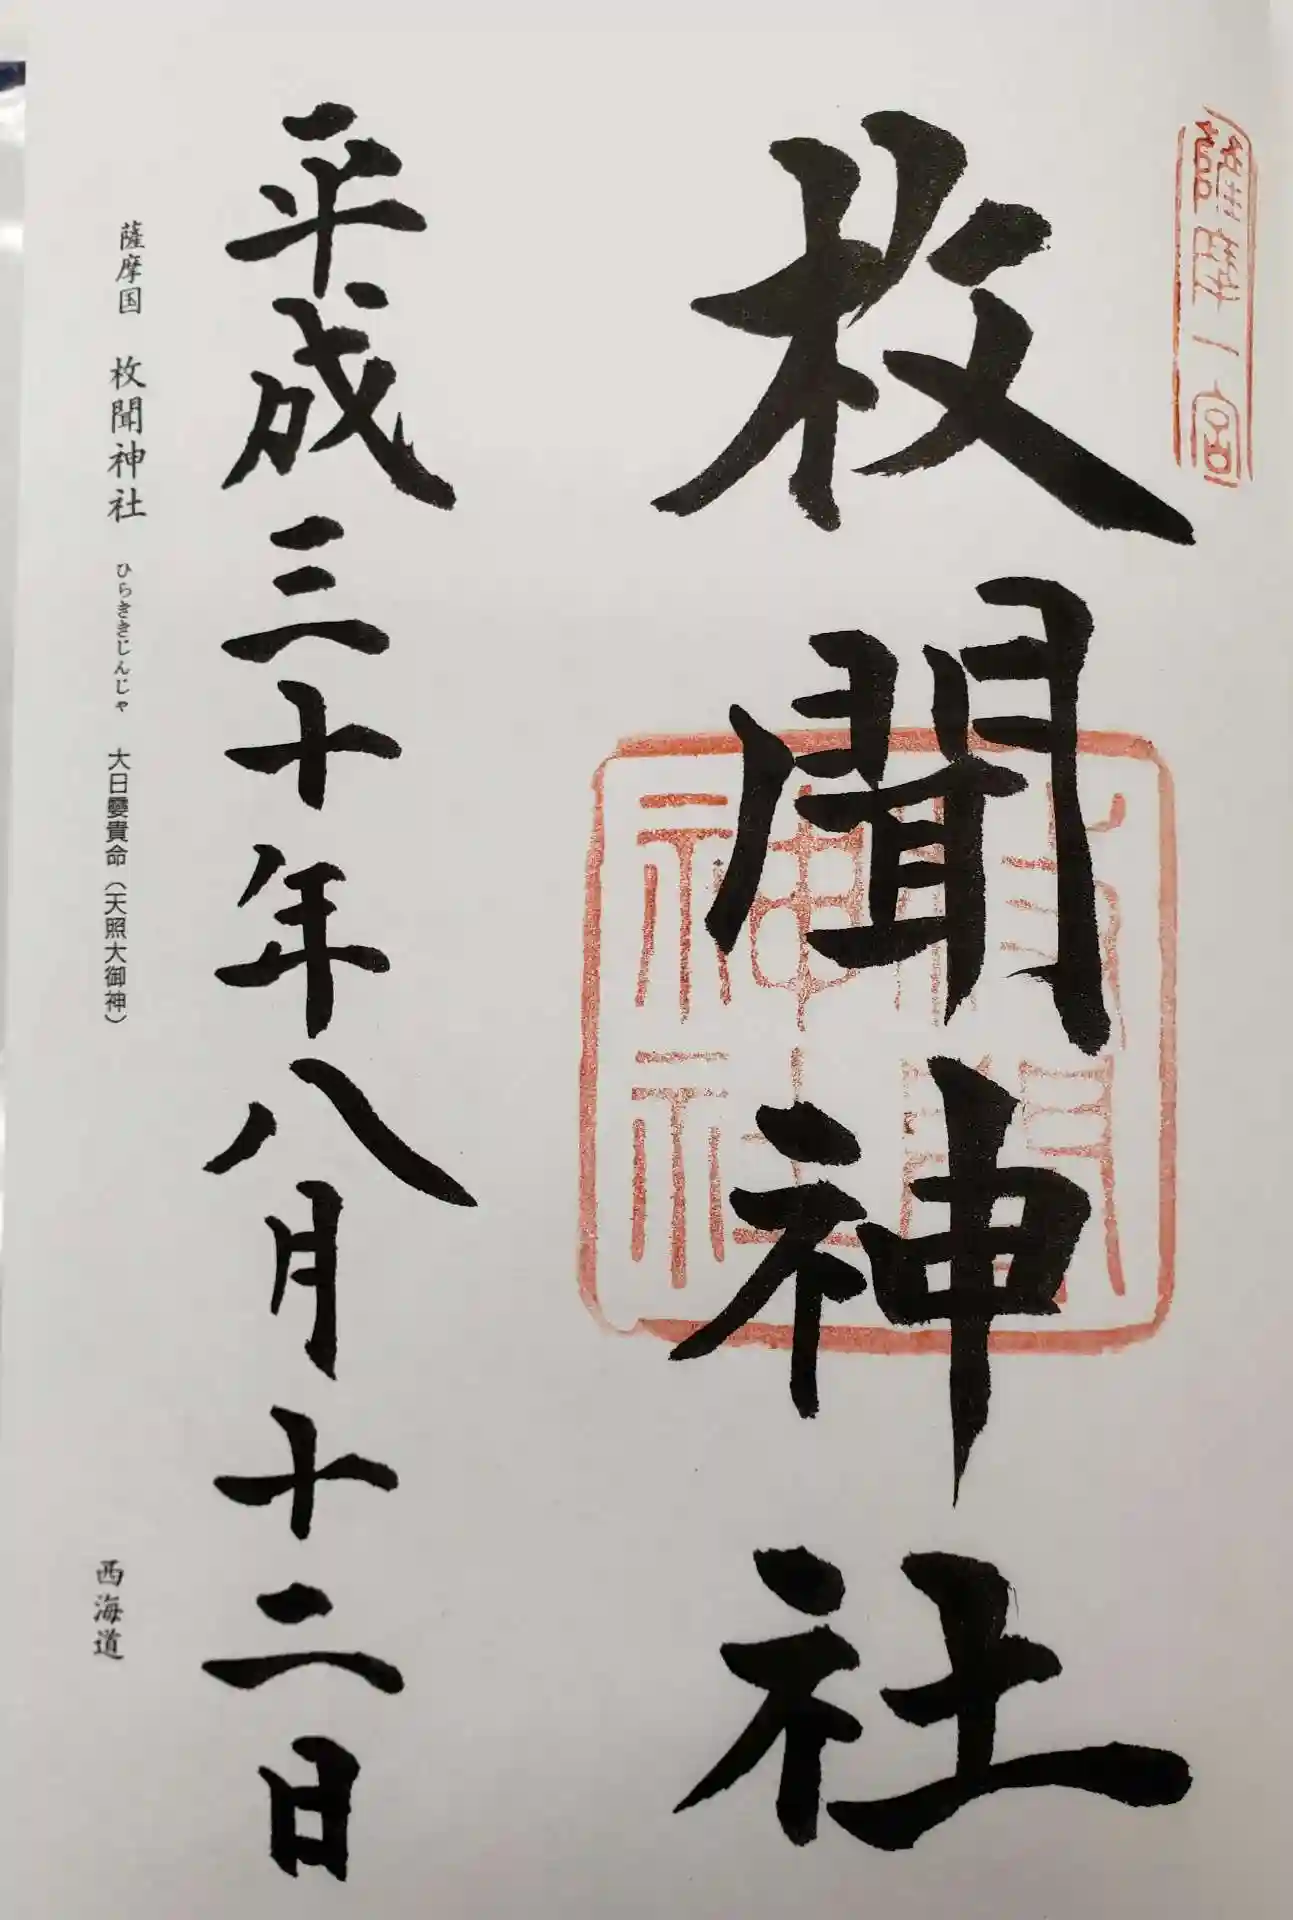 薩隅一宮
枚聞神社
枚聞神社
平成三十年八月十二日
薩摩国 枚聞神社 ひらききじんじゃ 大日孁貴命（天照大御神）
西海道